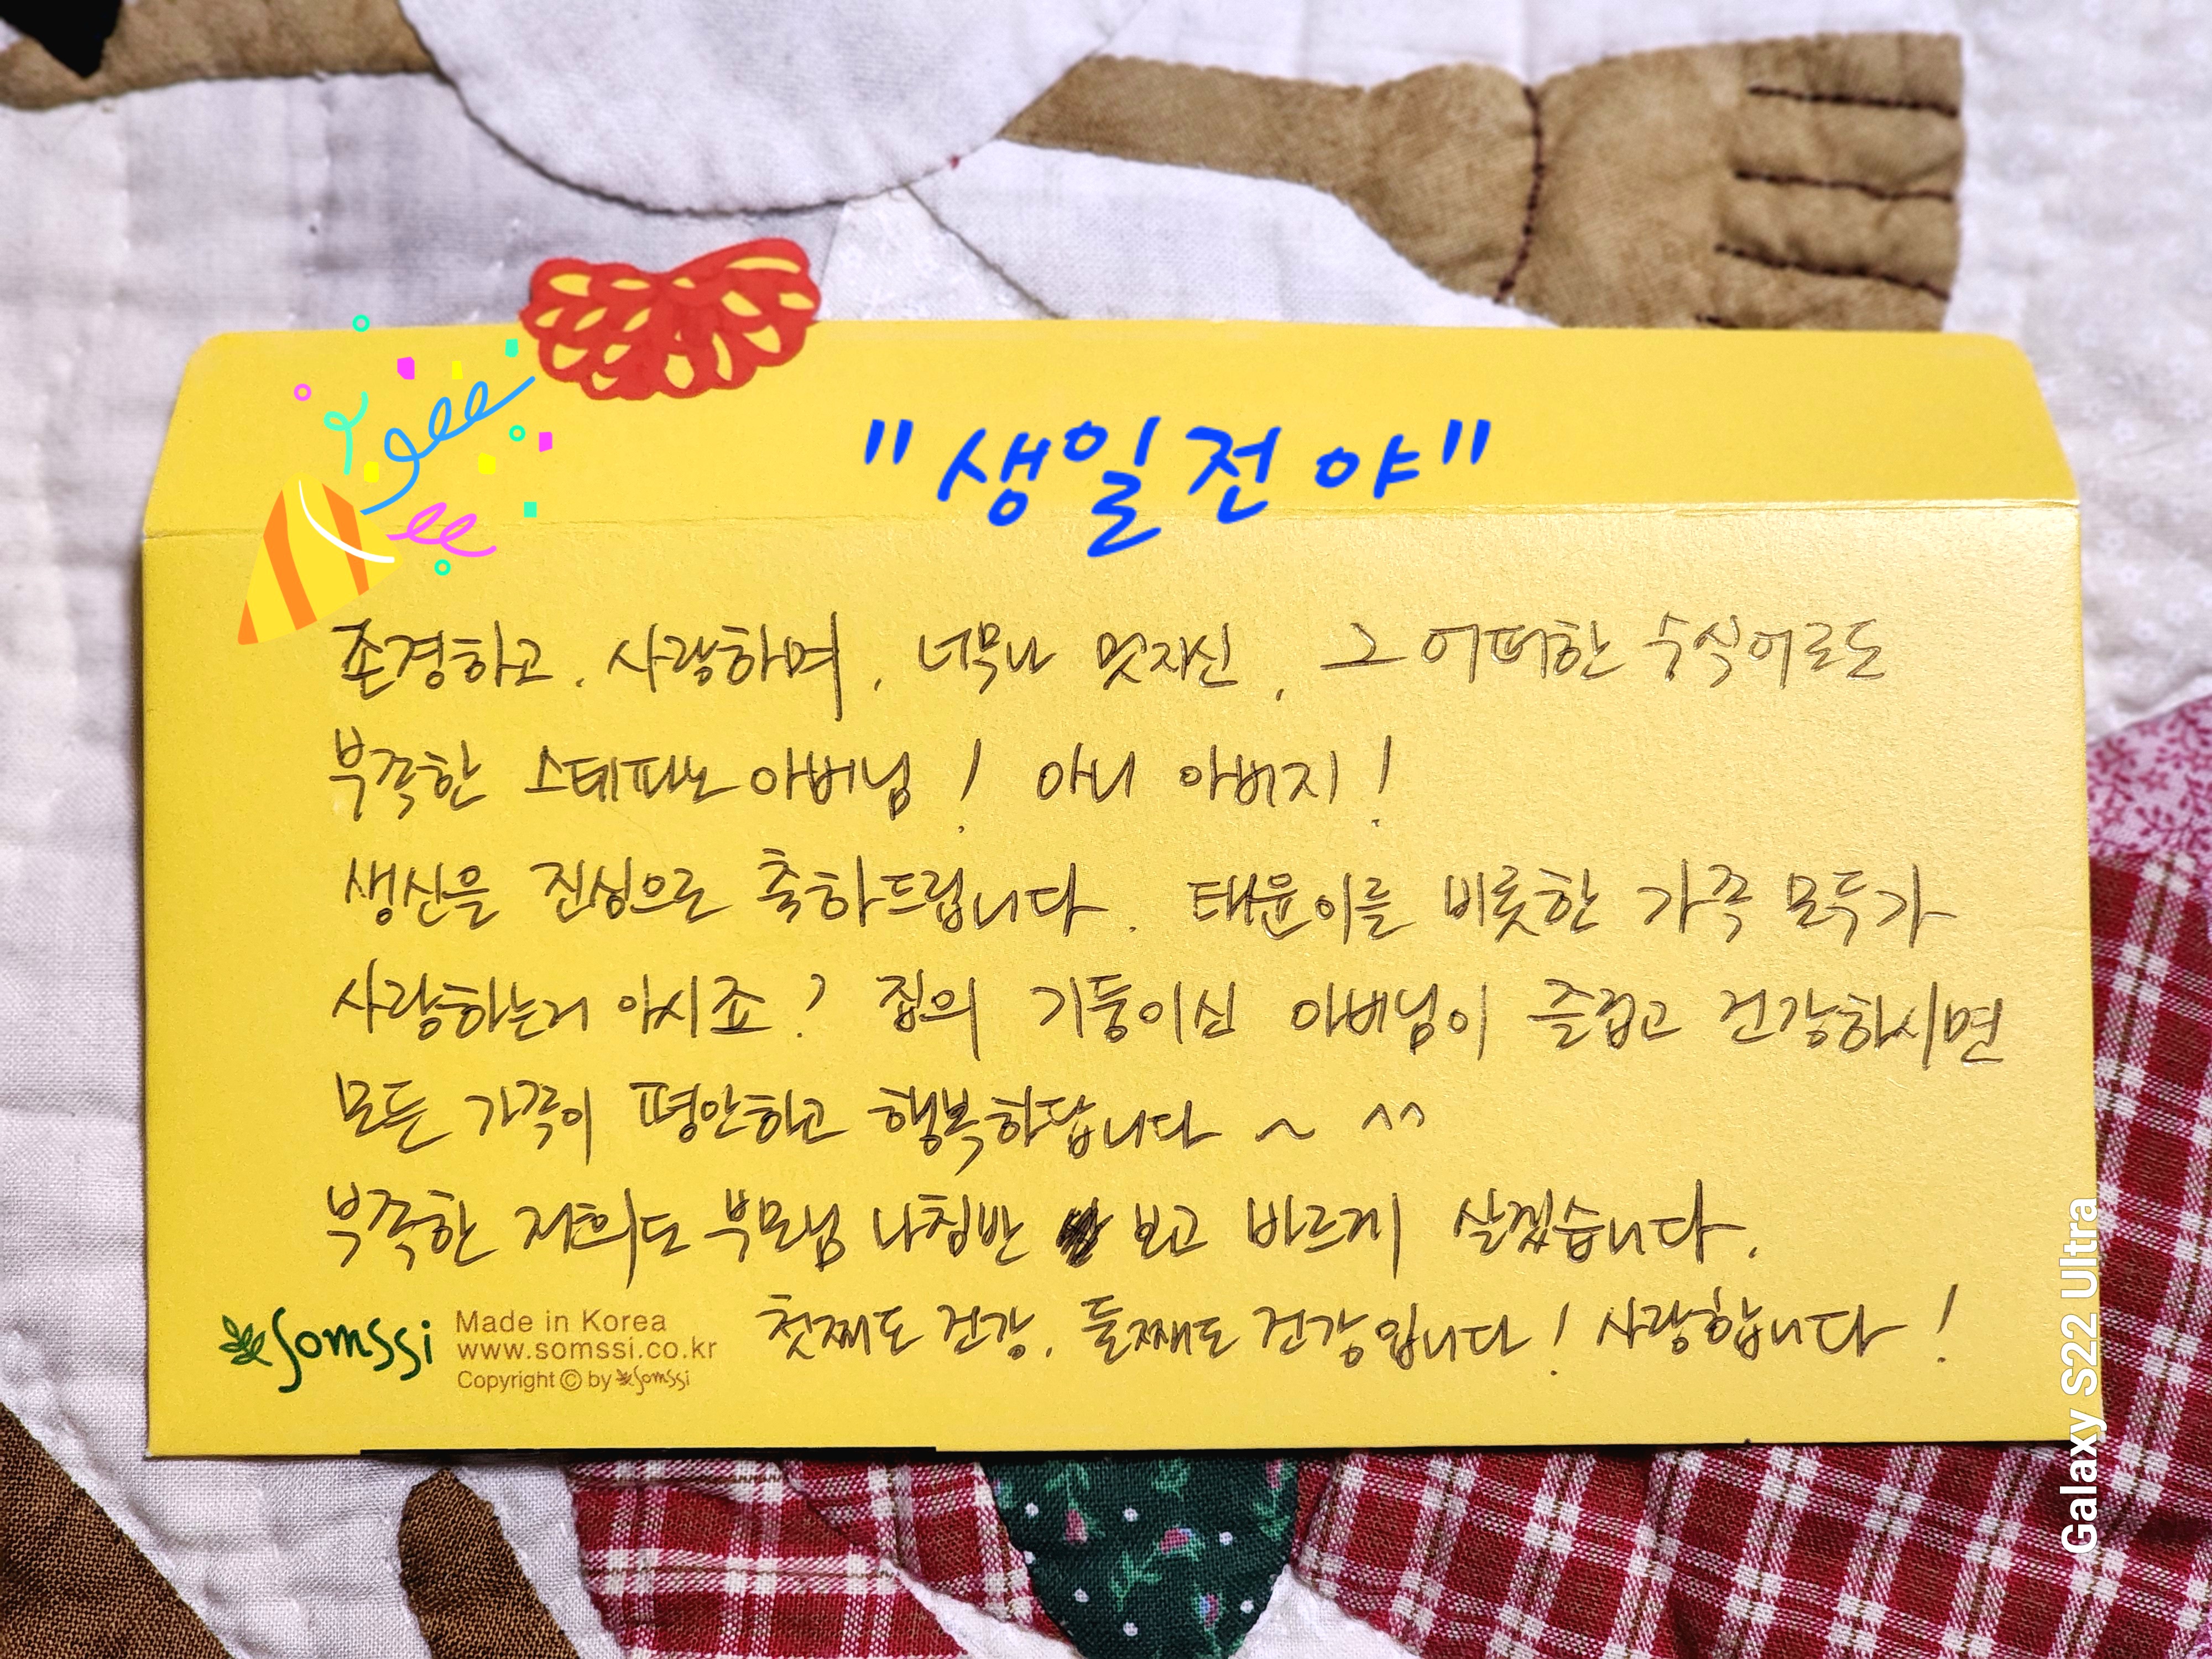 "생일전야"
존경하고, 사랑하며, 너무나 멋지신, 그 어떠한 수식어로도
부족한 스테파노 아버님! 아니 아버지!
생신을 진심으로 축하드립니다. 태윤이를 비롯한 가족 모두가
사랑하는거 아시죠? 집의 기둥이신 아버님이 즐겁고 건강하시면
모든 가족이 평안하고 행복하답니다 ~ ^^
부족한 저희도 부모님 나침반 보고 바르게 살겠습니다.
첫째도 건강, 둘째도 건강입니다! 사랑합니다!
Somssi
Made in Korea
www.somssi.co.kr
Copyright © by Somssi
Galaxy S22 Ultra